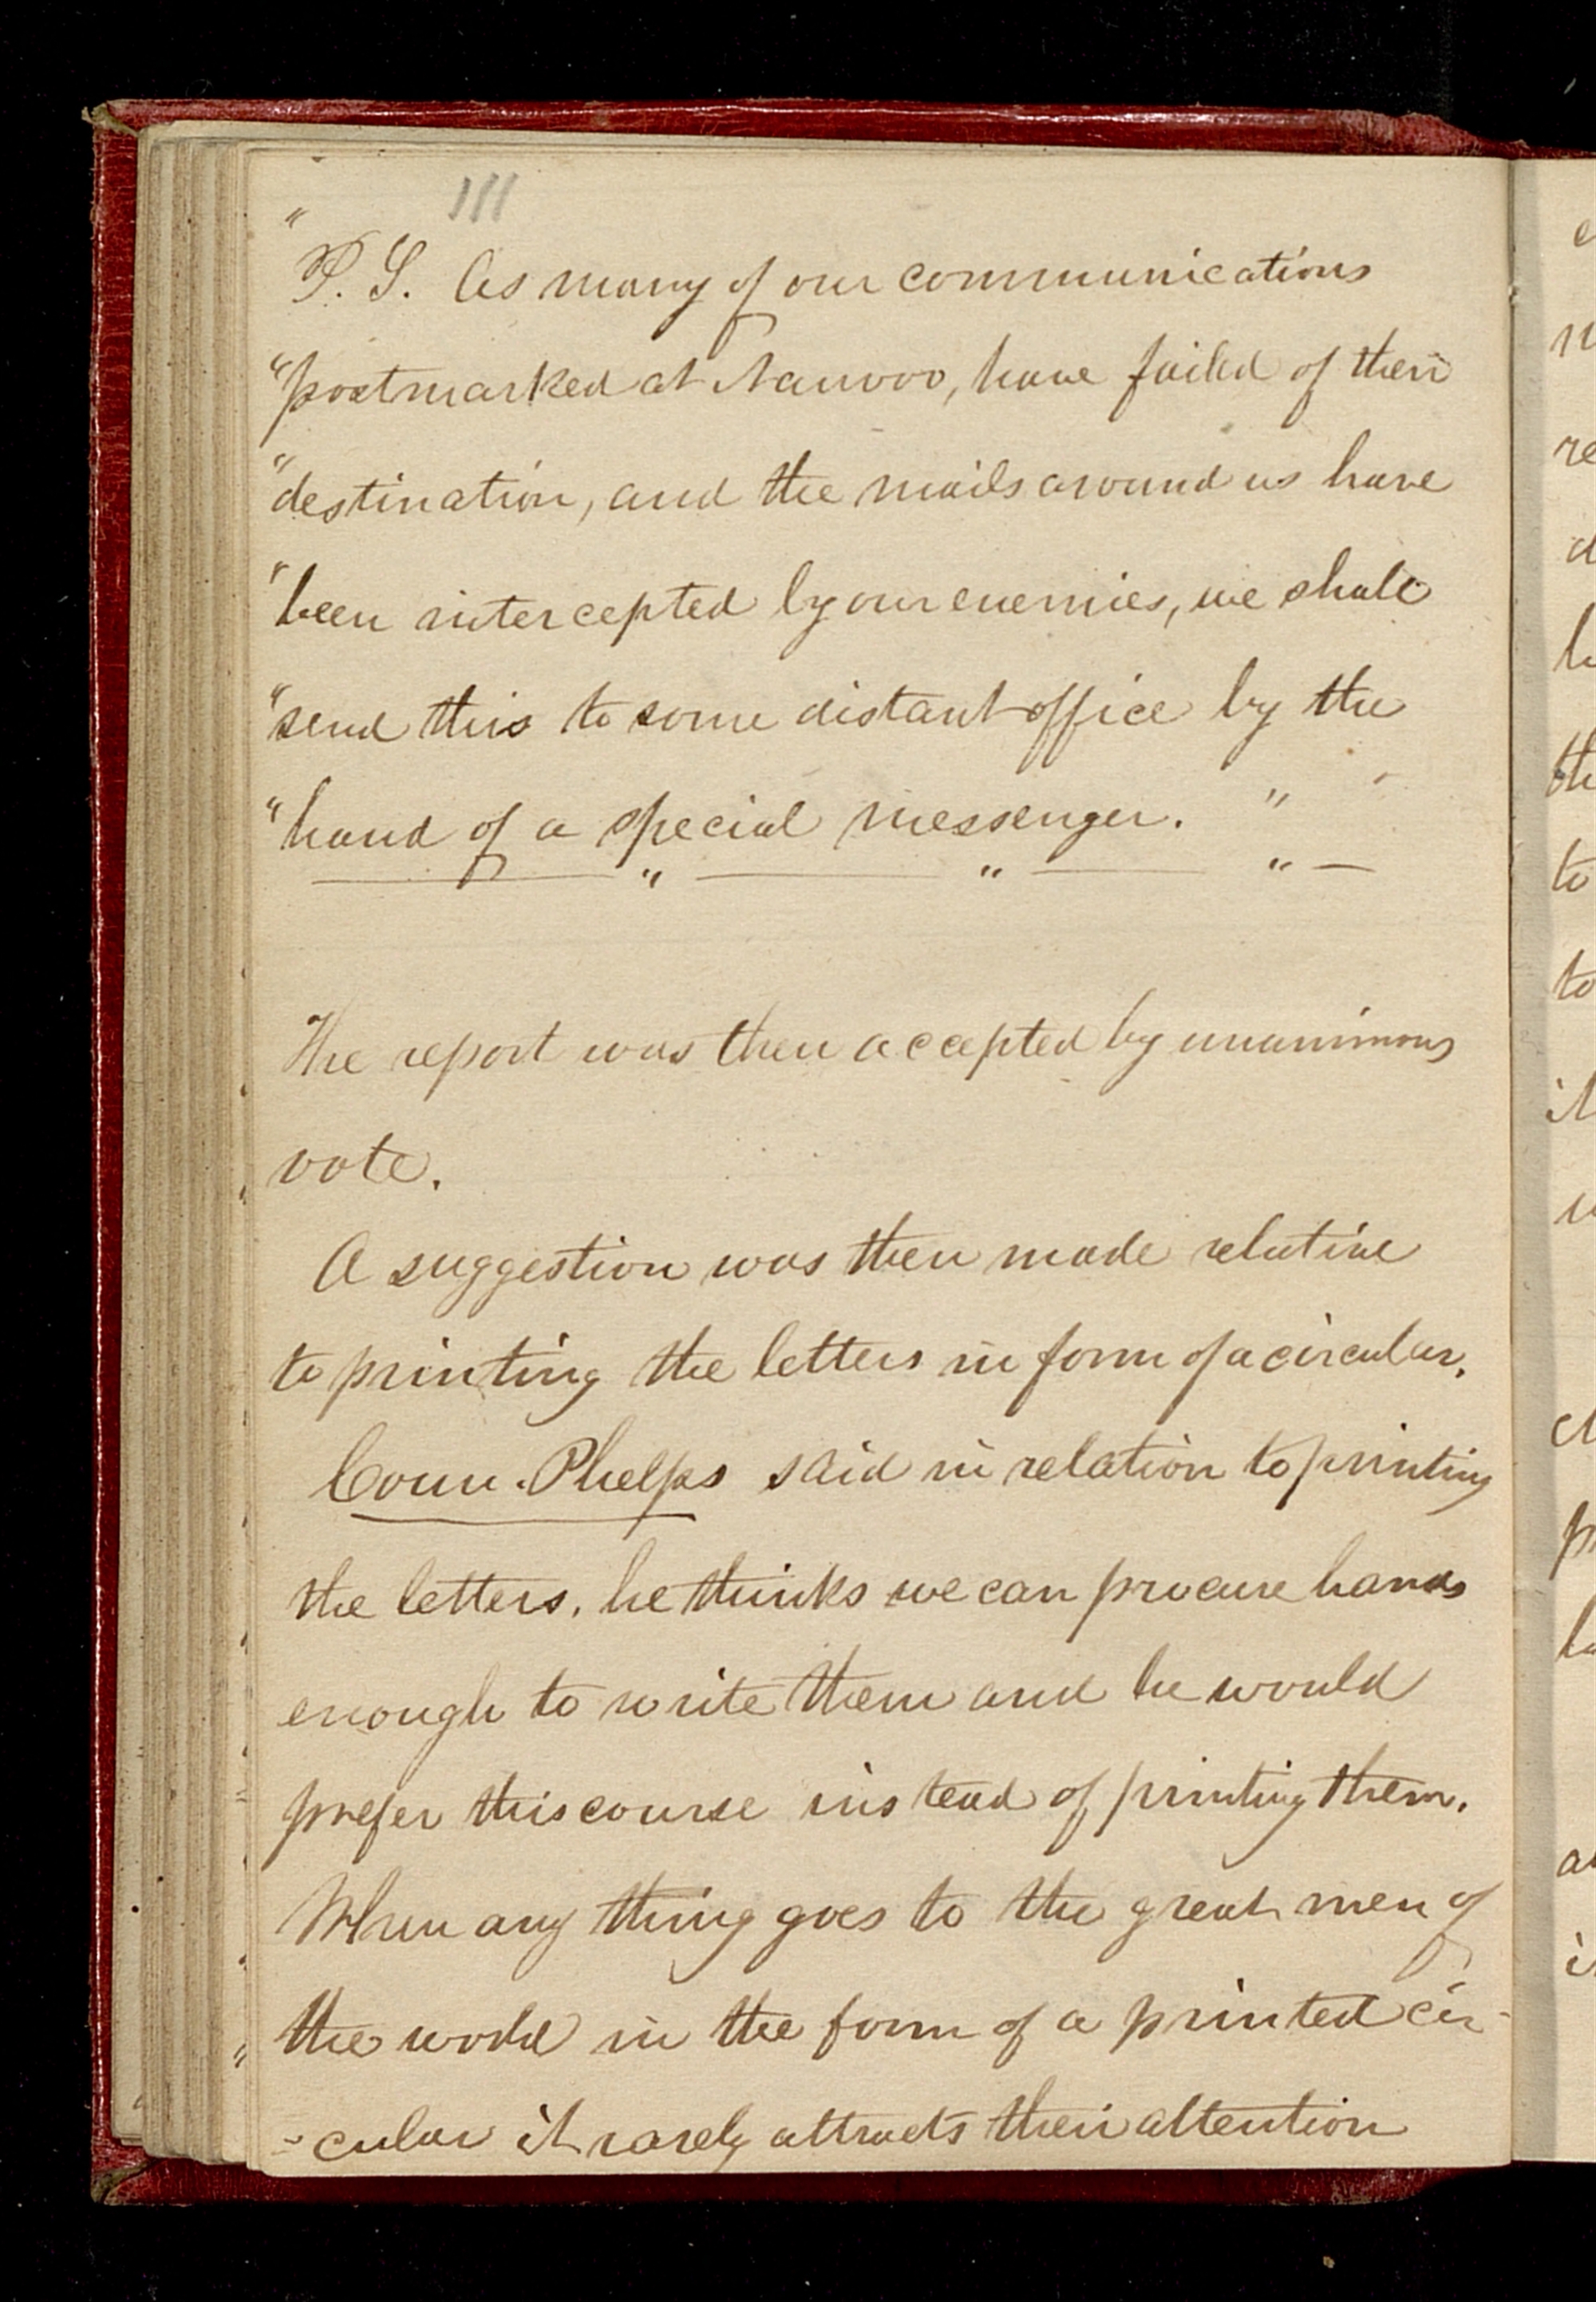 111
"
P. S. As many of our communications
"postmarked at Nauvoo, have failed of their
"destination, and the mails around us have
"been intercepted by our enemies, we shall
"send this to some distant office by the
"hand of a special messenger. "
" " "
The report was then accepted by unanimous
vote.
A suggestion was then made relative
to printing the letters in form of a circular.
Coun. Phelps said in relation to printing
the letters, he thinks we can procure hands
enough to write them and he would
prefer this course instead of printing them.
When any thing goes to the great men of
the world in the form of a printed cir-
-cular it rarely attracts their attention